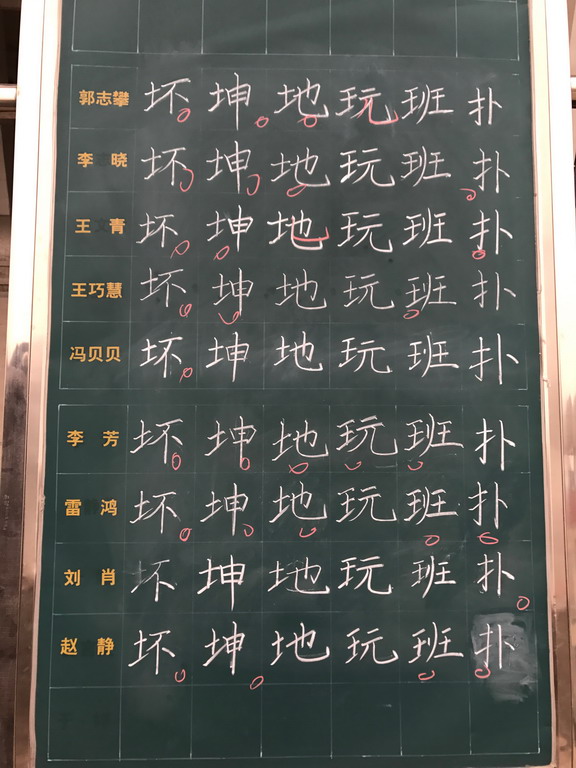 郭志攀 坏 坤 地 玩 班 扑
李 晓 坏 坤 地 玩 班 扑
王 青 坏 坤 地 玩 班 扑
王巧慧 坏 坤 地 玩 班 扑
冯贝贝 坏 坤 地 玩 班 扑
李 芳 坏 坤 地 玩 班 扑
雷 鸿 坏 坤 地 玩 班 扑
刘 肖 坏 坤 地 玩 班 扑
赵 静 坏 坤 地 玩 班 扑